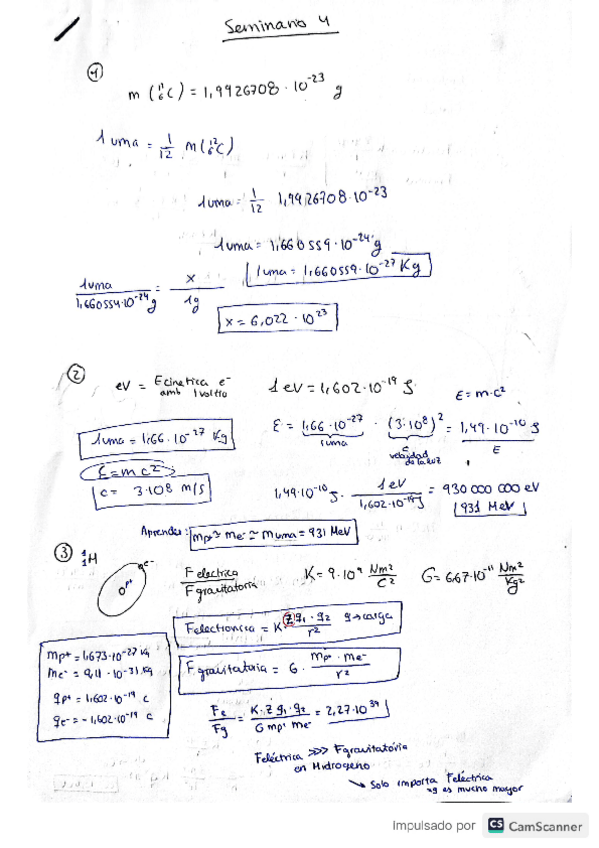 Seminario 4
①
m (¹²₆C) = 1,9926708 · 10⁻²³ g
1 uma = 1/12 m(¹²₆C)
1uma = 1/12 1,9926708·10⁻²³
1uma = 1,660559·10⁻²⁴ g
1uma = 1,660559·10⁻²⁷ Kg
1uma / 1,660559·10⁻²⁴ g = x / 1g
x = 6,022 · 10²³
②
eV = Ecinetica e⁻ amb 1 voltio
1 eV = 1,602·10⁻¹⁹ J
E = m·c²
1uma = 1,66·10⁻²⁷ Kg
E = 1,66·10⁻²⁷ · (3·10⁸)² = 1,49·10⁻¹⁰ J
1uma
c velocidad de la luz
E
E = mc²
c = 3·108 m/s
1,49·10⁻¹⁰ J · 1eV / 1,602·10⁻¹⁹ J = 930 000 000 eV
931 MeV
Aprender: mp⁺ ≃ me⁻ ≃ muma = 931 MeV
③ ¹₁H
e⁻
p⁺
F electrica / F gravitatoria
K = 9·10⁹ Nm²/C²
G = 6,67·10⁻¹¹ Nm²/Kg²
Felectronica = K Z q₁·q₂ / r² q→carga
F gravitatoria = G · mp⁺·me⁻ / r²
mp⁺ = 1,673·10⁻²⁷ Kg
me⁻ = 9,11·10⁻³¹ Kg
qp⁺ = 1,602·10⁻¹⁹ C
qe⁻ = -1,602·10⁻¹⁹ C
Fe / Fg = K·Z q₁·q₂ / G mp⁺ me⁻ = 2,27·10³⁹
Feléctrica >>> Fgravitatoria
en Hidrogeno
↳ Solo importa Feléctrica
es mucho mayor
Impulsado por CS CamScanner